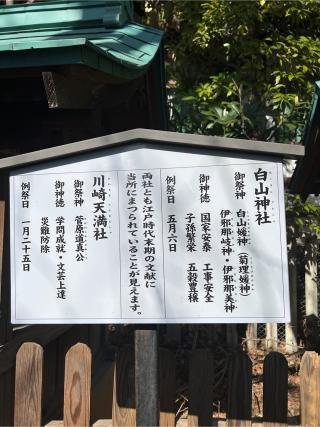 白山神社
御祭神　白山媛神（菊理媛神）
伊邪那岐神・伊邪那美神
御神徳　国家安泰　工事安全
子孫繁栄　五穀豊穣
例祭日　五月六日
両社とも江戸時代末期の文献に
当所にまつられていることが見えます。
川崎天満社
御祭神　菅原道真公
御神徳　学問成就・文芸上達
災難防除
例祭日　一月二十五日